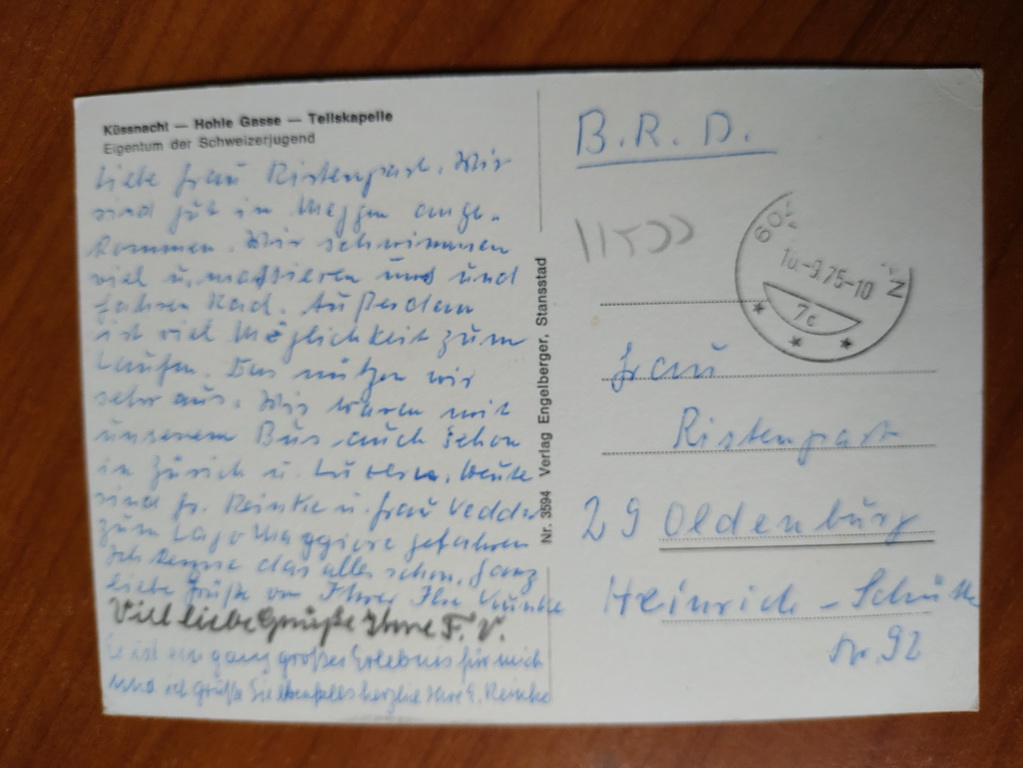 Küssnacht — Hohle Gasse — Tellskapelle
Eigentum der Schweizerjugend
Liebe Frau Ristenpart. Wir
sind gut in Meggen ange-
kommen. Wir schwimmen
viel u. massieren uns und
fahren Rad. Außerdem
ist viel Möglichkeit zum
Laufen. Das nützen wir
sehr aus. Wir waren mit
unserem Bus auch schon
in Zürich u. Luzern. Heute
sind Fr. Reinke u. Frau Vedder
zum Lago Maggiore gefahren
Ich kenne das alles schon. Ganz
liebe Grüße von Ihrer Ilse
Viel liebe Grüße Ihre F. V.
Es ist ein ganz großes Erlebnis für mich
und ich grüße Sie ebenfalls herzlich Ihre E. Reinke
Nr. 3594 Verlag Engelberger, Stansstad
B.R.D.
60
10.-9.75-10
7c
N
Frau
Ristenpart
29 Oldenburg
Heinrich-Schütte
Nr. 92